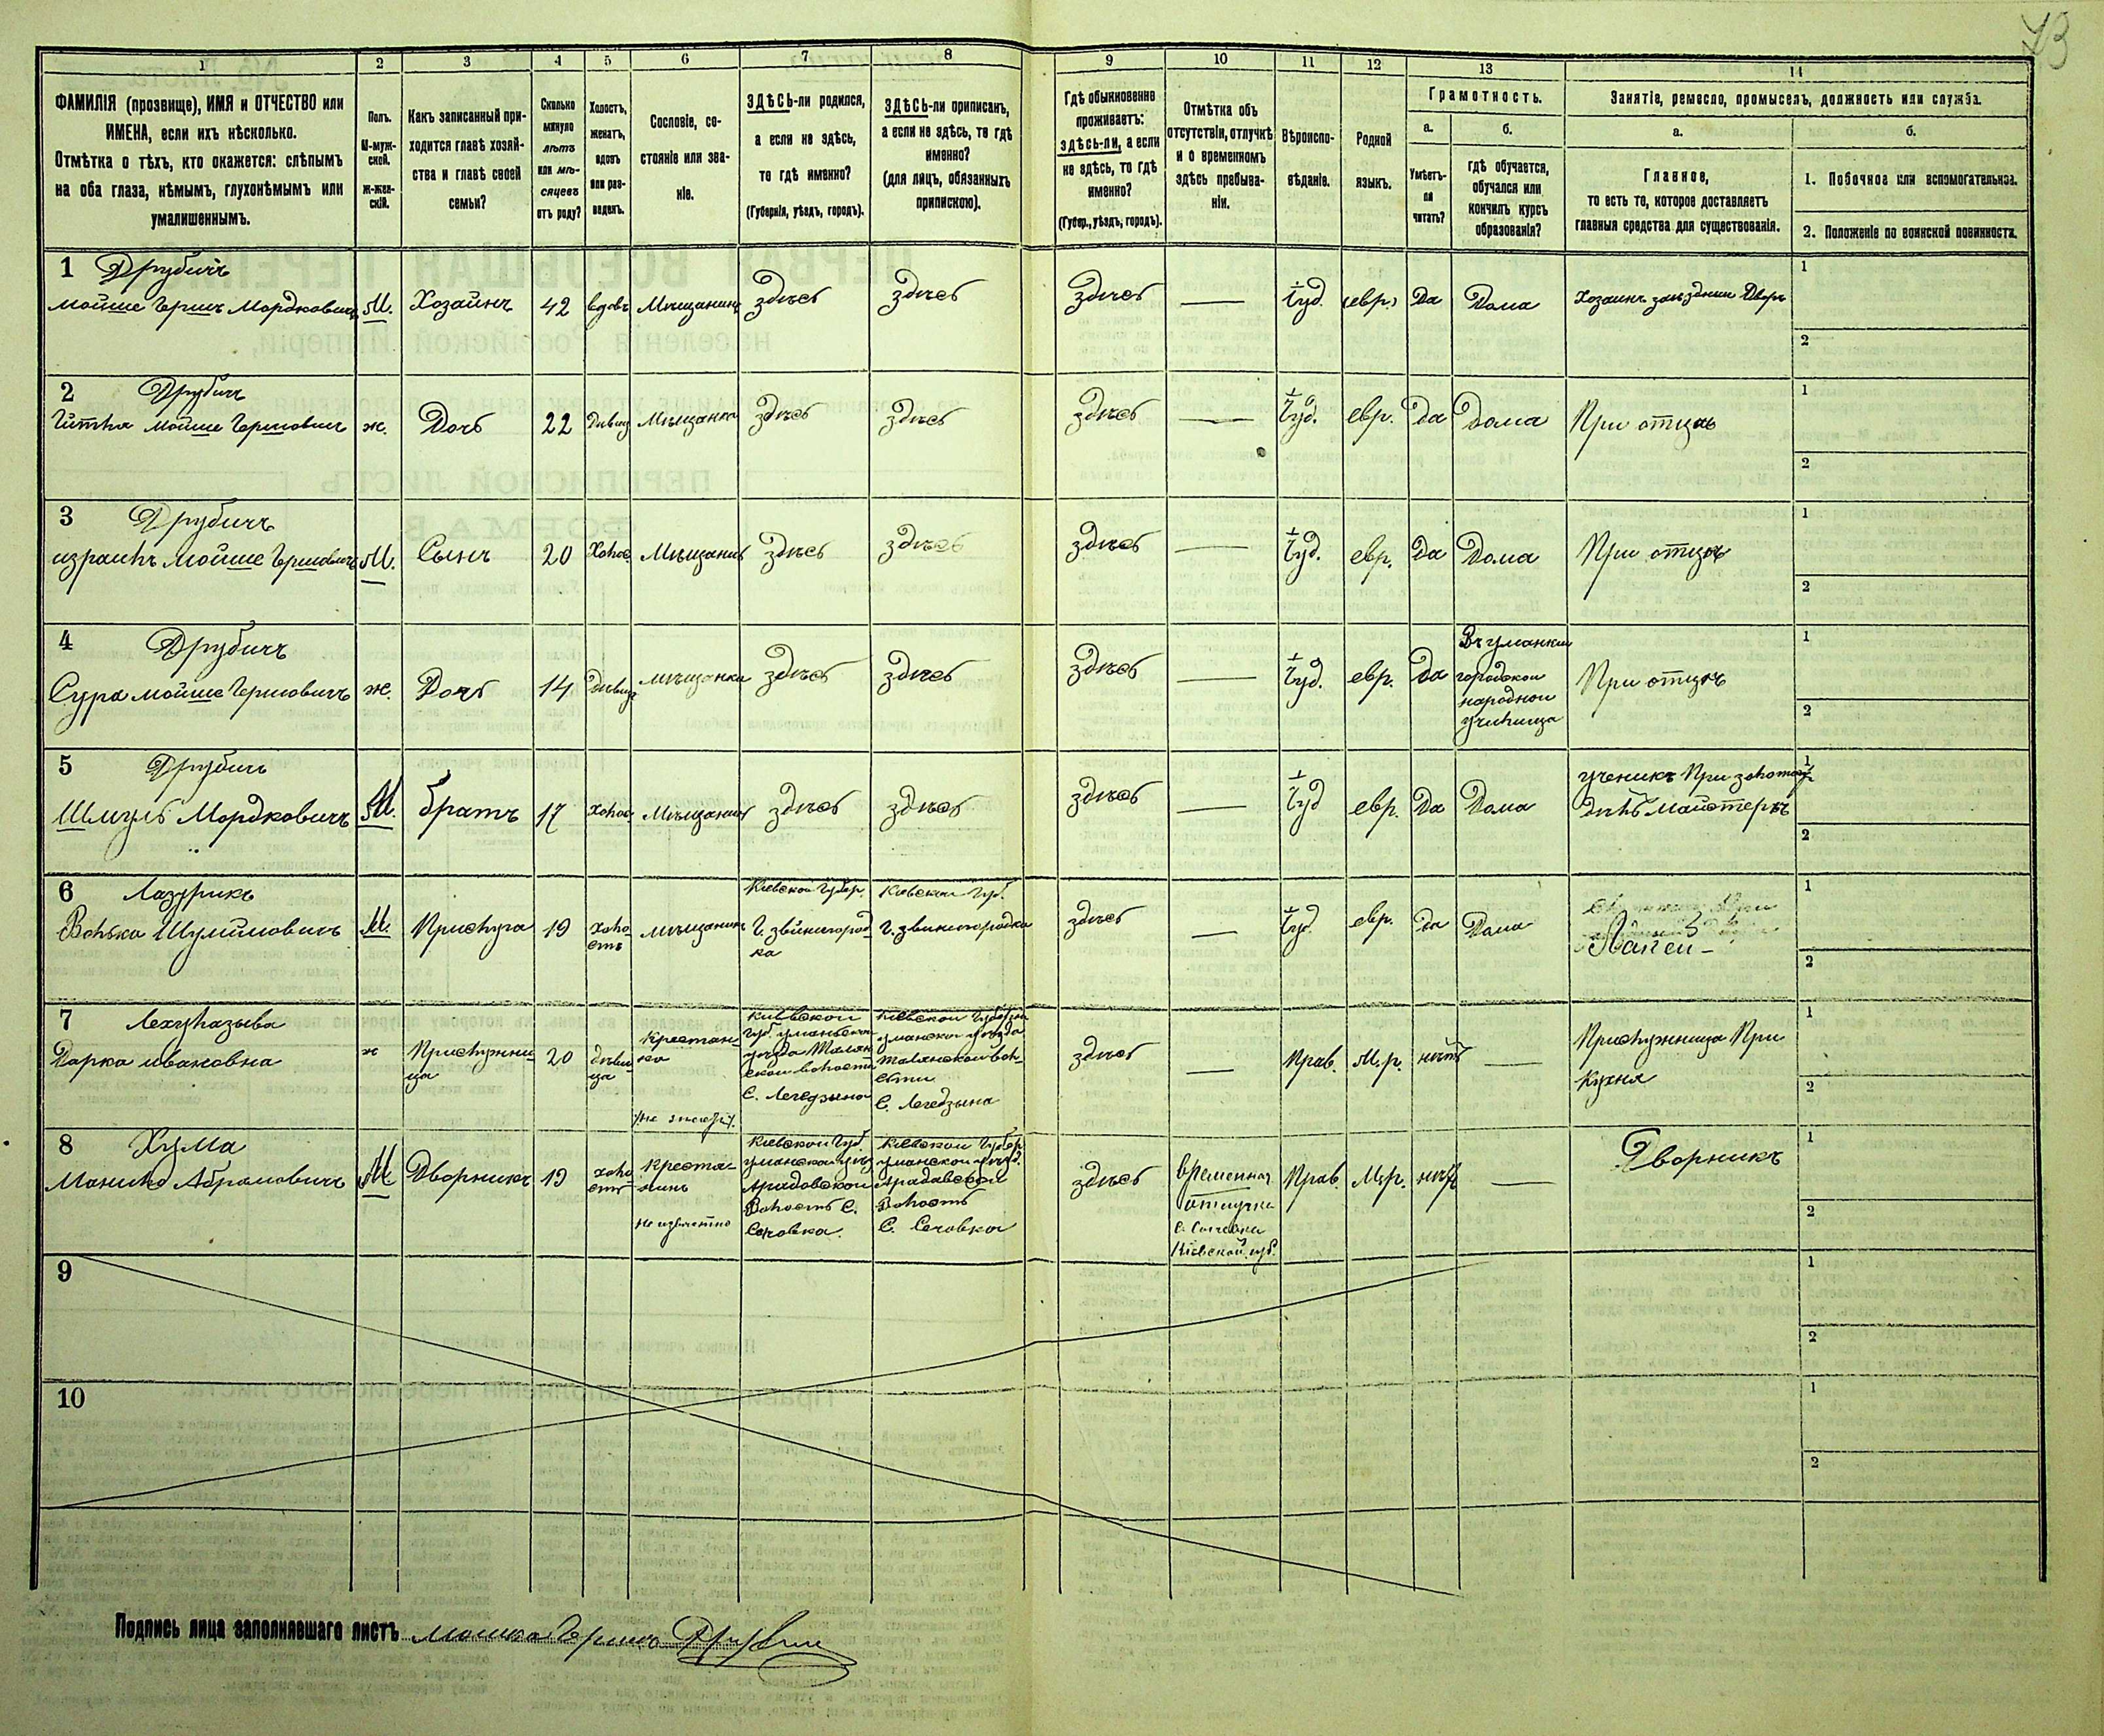 73
1 2 3 4 5 6 7 8 9 10 11 12 13 14
ФАМИЛІЯ (прозвище), ИМЯ и ОТЧЕСТВО или
ИМЕНА, если ихъ нѣсколько.
Отмѣтка о тѣхъ, кто окажется: слѣпымъ
на оба глаза, нѣмымъ, глухонѣмымъ или
умалишеннымъ.
Полъ.
М-муж-
ской.
Ж-жен-
скій.
Какъ записанный при-
ходится главѣ хозяй-
ства и главѣ своей
семьи?
Сколько
минуло
лѣтъ
или мѣ-
сяцевъ
отъ роду?
Холостъ,
женатъ,
вдовъ
или раз-
веденъ.
Сословіе, со-
стояніе или зва-
ніе.
ЗДѢСЬ-ли родился,
а если не здѣсь,
то гдѣ именно?
(Губернія, уѣздъ, городъ).
ЗДѢСЬ-ли приписанъ,
а если не здѣсь, то гдѣ
именно?
(для лицъ, обязанныхъ
припискою).
Гдѣ обыкновенно
проживаетъ:
здѣсь-ли, а если
не здѣсь, то гдѣ
именно?
(Губер., уѣздъ, городъ).
Отмѣтка объ
отсутствіи, отлучкѣ
и о временномъ
здѣсь пребыва-
ніи.
Вѣроиспо-
вѣданіе.
Родной
языкъ.
Грамотность.
а.
Умѣетъ-
ли
читать?
б.
гдѣ обучается,
обучался или
кончилъ курсъ
образованія?
Занятіе, ремесло, промыселъ, должность или служба.
а.
Главное,
то есть то, которое доставляетъ
главныя средства для существованія.
б.
1. Побочное или вспомогательное.
2. Положеніе по воинской повинности.
1 Друбичъ
Мойше Гершъ Мордковичъ М. Хозаинъ 42 вдовъ Мѣщанинъ здѣсь здѣсь здѣсь — Іуд. евр. Да Дома Хозаинъ заѣзднии Дворъ
1
2
2 Друбичъ
Гитля Мойше Гершовичъ ж. Дочь 22 Дѣвиц Мѣщанка здѣсь здѣсь здѣсь — Іуд. евр. Да Дома При отцѣ
1
2
3 Друбичъ
Израиль Мойше Гершовичъ М. Сынъ 20 Холос. Мѣщанинъ здѣсь здѣсь здѣсь — Іуд. евр. Да Дома При отцѣ
1
2
4 Друбичъ
Сура Мойше Гершовичъ ж. Дочь 14 Дѣвиц мѣщанка здѣсь здѣсь здѣсь — Іуд. евр. Да
городской
народнои
училища
При отцѣ
1
2
5 Друбичъ
Шмуль Мордковичъ М. братъ 17 Холос Мѣщанинъ здѣсь здѣсь здѣсь — Іуд евр. Да Дома
ученикъ При золотых
дѣлъ майстеръ
1
2
6 Лазурикъ
Волька Шулимовичъ М. Прислуга 19
холо
стъ
мѣщанинъ
Кіевской Губер.
Г. звѣнигород
ка
Кіевскои Губ.
г. звѣнигородка
здѣсь — Іуд. евр. да Дома
Лакей -
1
2
7
Дарка Ивановна ж
Прислужни
ца
20
дѣви
ца
Крестьян-
ка
С. Легедзына
С. Легедзына
здѣсь — Прав. М.р. нѣтъ —
Прислужница При
Кухня
1
2
8 Хума
М Дворникъ 19
холо
стъ
Крестья-
нинъ
Неизвѣстно
Кіевской Губ.
Волость С.
Кіевской Губер
Волость
здѣсь
Временная
отлучка
Кіевской губ.
Прав. М.р. нѣтъ — Дворникъ
1
2
9
1
2
10
1
2
Подпись лица заполнявшаго листъ Мошко Гершъ Друбич